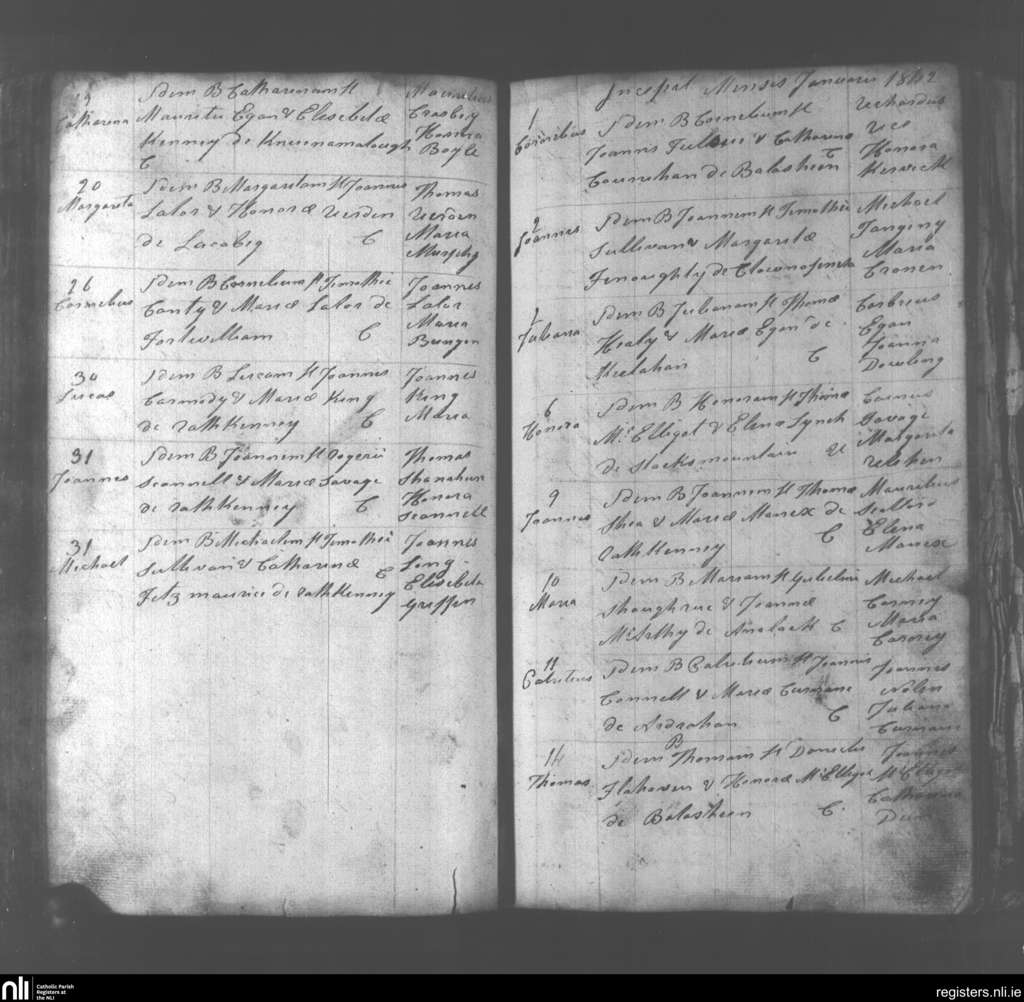 19
Catharena
Idem B Catharenam fl
Mauritii Egan & Elesebetæ
Kenney de
C
Crosbey
Honora
Boyle
20
Margareta
Idem B Margaretam fl Joannes
Lalor & Honoræ Verden
de Lacabey C
Thomas
Verden
Maria
Murphy
26
Cornelius
Idem B Cornelium fl Timothii
Canty & Mariæ Lalor de
Fortwilliam C
Joannes
Lalor
Maria
30
Lucas
Idem B Lucam fl Joannis
Carmody & Mariæ King
de Rathkenney C
Joannes
King
Maria
31
Joannes
Idem B Joannem fl Rogerii
Scannell & Mariæ Savage
de Rathkenney C
Thomas
Shanahan
Honora
Scannell
31
Michael
Idem B Michaelem fl Timothii
Sullevan & Catharenæ C
Fetz maurice de Rathkenney
Joannes
Long
Elesebeta
Greffen
Incepit Menses Januarii 1842
1
Cornelius
Idem B Cornelium fl
Joannis & Catharena
de Balasheen C
Richardus
Rice
Honora
Kerwick
2
Joannes
Idem B Joannem fl Timothii
Sullevan & Margaretæ
Fenoughty de
Michael
Maria
Cronen
Juliana
Idem B Julianam fl Thomæ
Healy & Mariæ Egan de
Keelahan C
Egan
Joanna
Dowleng
6
Honora
Idem B Honoram fl Thomæ
McElligot & Elenæ Lynch
de Stacksmountain
Savage
Margareta
9
Joannes
Idem B Joannem fl Thomæ
Shea & Mariæ Manix de
Rathkenney C
Mauritius
Elena
10
Maria
Idem B Mariam fl Gulielmi
& Joannæ
McArthy de C
Michael
Carney
Maria
Carney
11
Idem B fl Joannis
Connell & Mariæ Curnane
de Ardrahan C
Joannes
Nolen
Juliana
Curnane
14
Thomas
Idem B Thomam fl Danielis
Flahaven & Honoræ McElligot
de Balasheen C.
Joannes
McElligot
Catharena